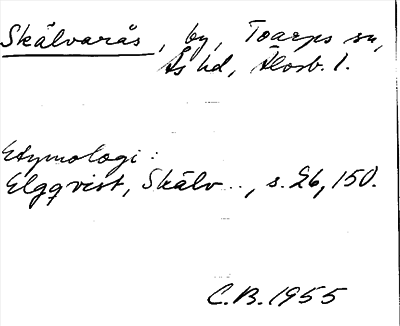 Skälvarås, by, Toarps sn,
Ås hd, Älvsb. l.
Etymologi:
Elgqvist, Skälv..., s. 26, 150.
C.B. 1955